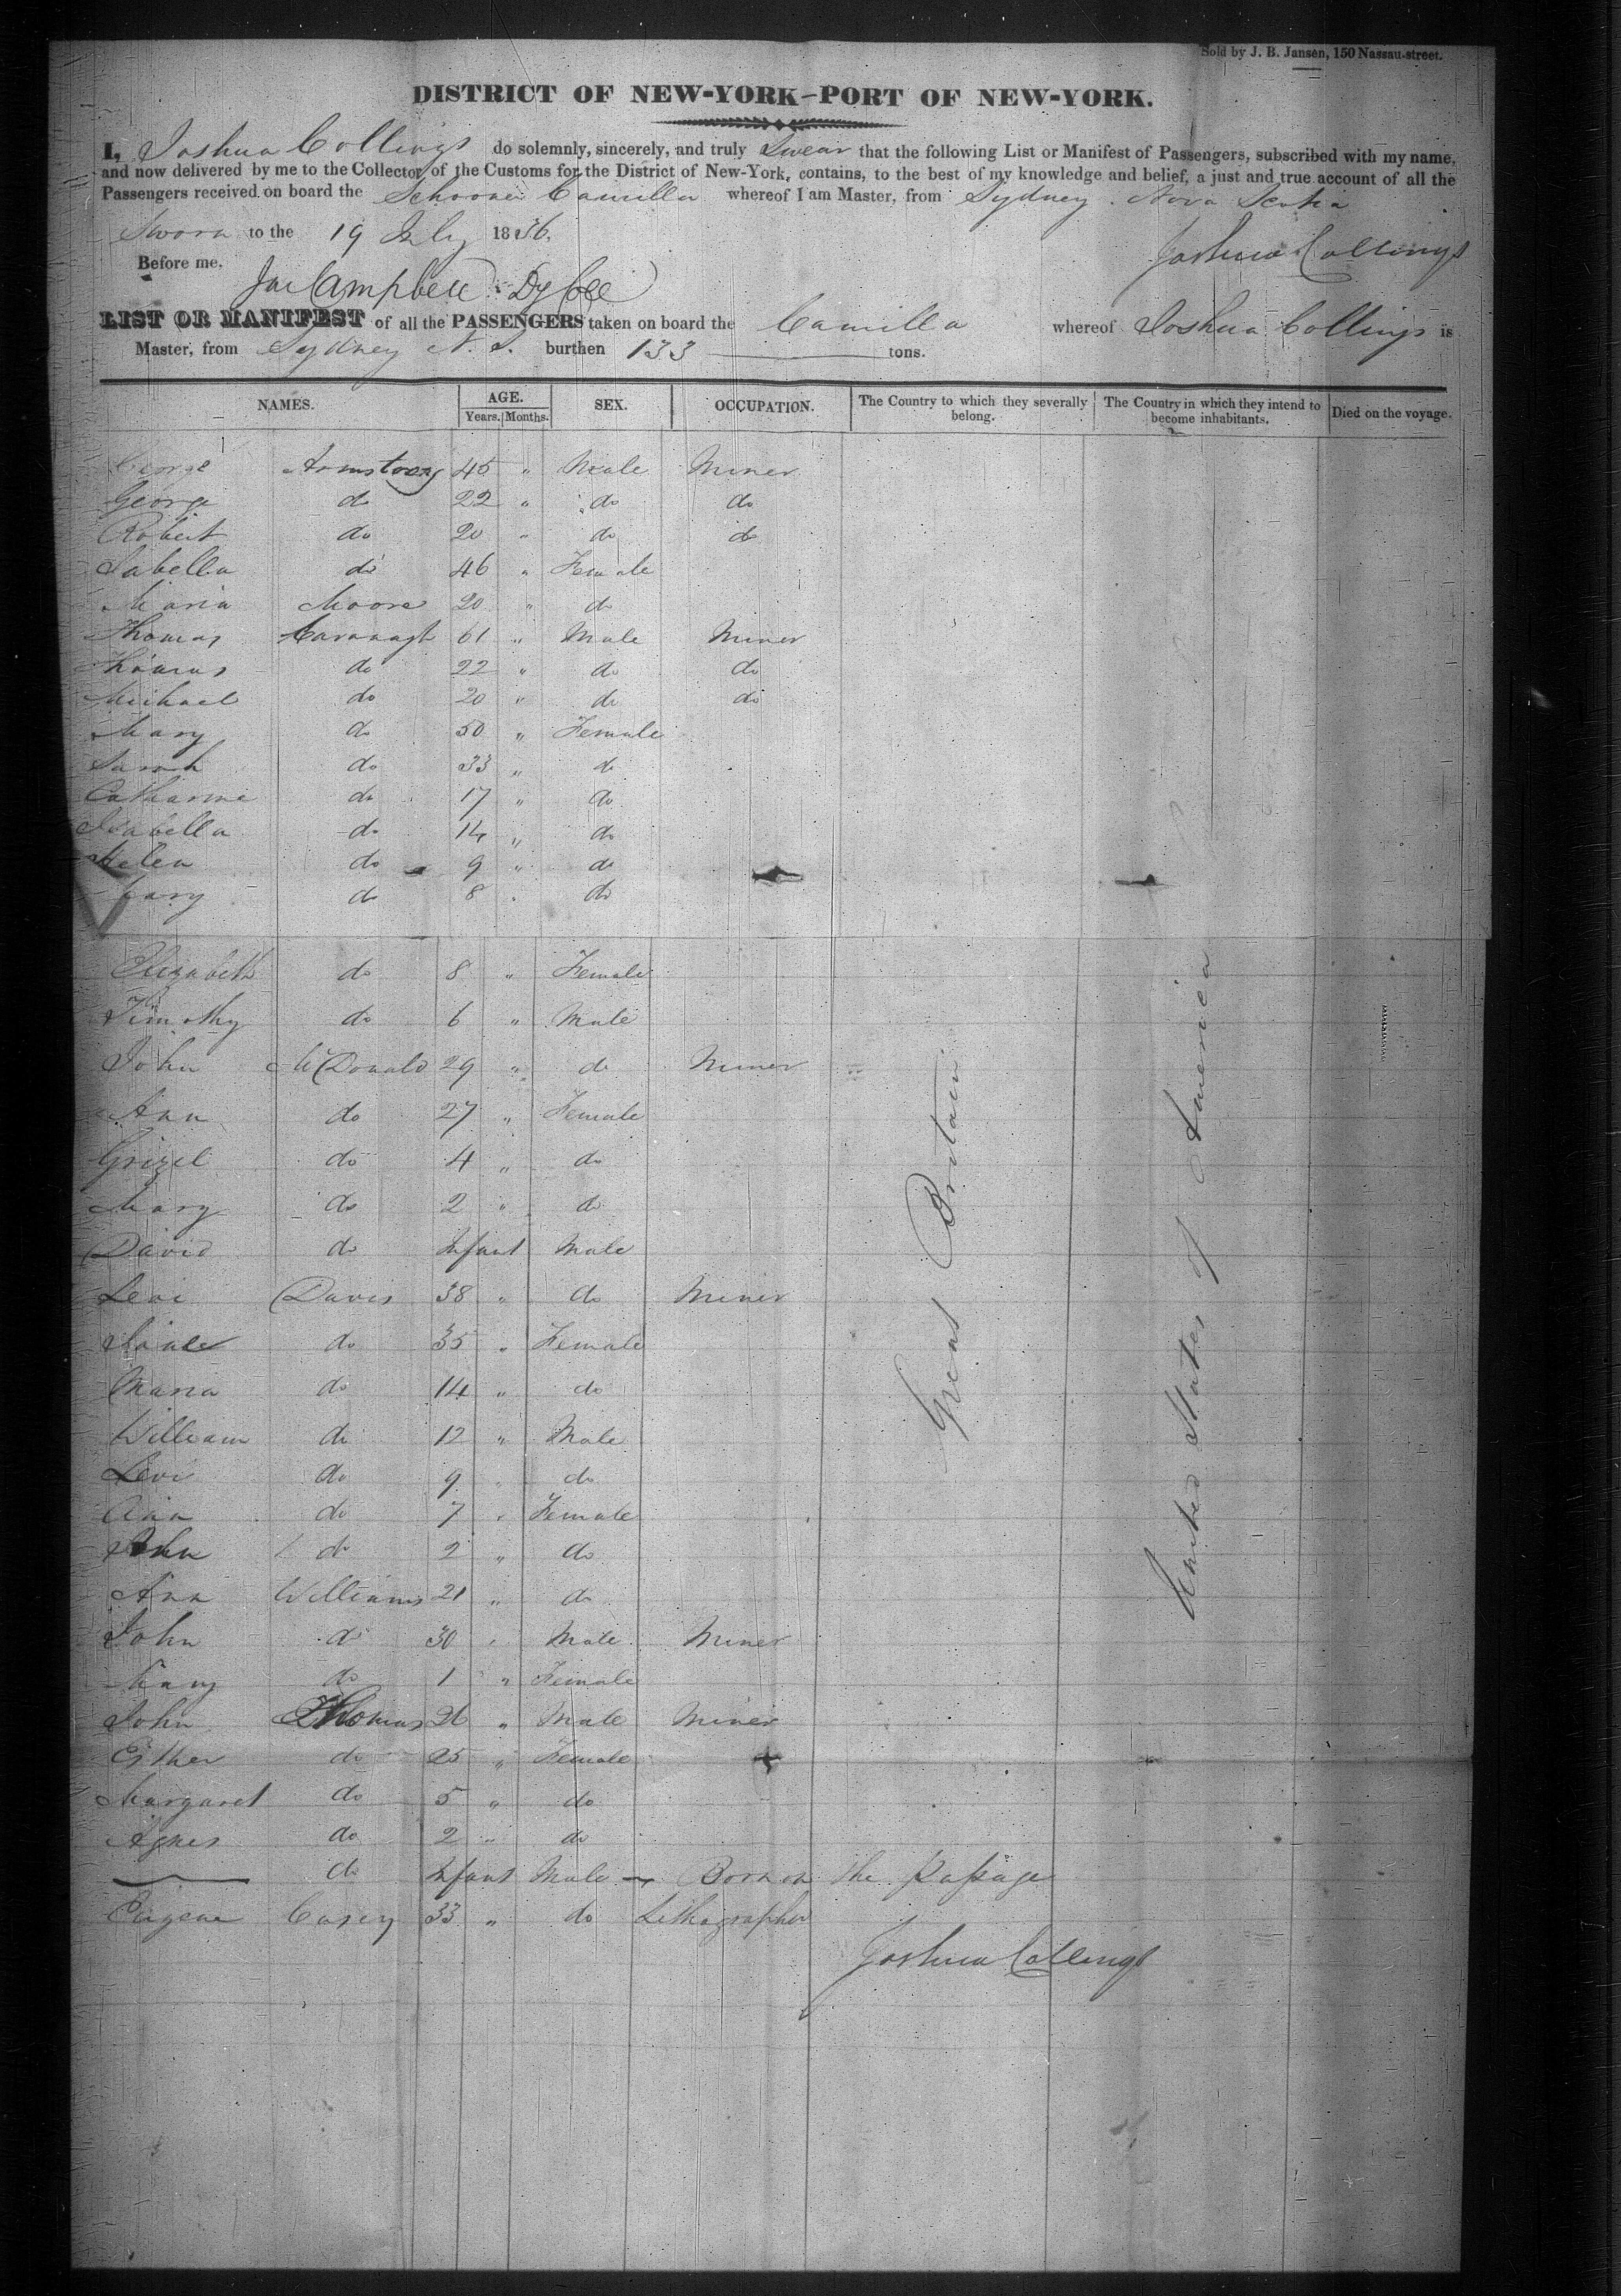 Sold by J. B. Jansen, 150 Nassau-street.
DISTRICT OF NEW-YORK—PORT OF NEW-YORK.
I, Joshua Collings do solemnly, sincerely, and truly Swear that the following List or Manifest of Passengers, subscribed with my name,
and now delivered by me to the Collector of the Customs for the District of New-York, contains, to the best of my knowledge and belief, a just and true account of all the
Passengers received on board the Schooner Camilla whereof I am Master, from Sydney. Nova Scotia
Sworn to the 19 July 1836.
Joshua Collings
Before me.
Jas Campbell Dy Coll
LIST OR MANIFEST of all the PASSENGERS taken on board the Camilla whereof Joshua Collings is
Master, from Sydney N. S. burthen 133 tons.
NAMES. AGE. Years. Months. SEX. OCCUPATION. The Country to which they severally belong. The Country in which they intend to become inhabitants. Died on the voyage.
George Armstrong 45 " Male Miner
George do 22 " do do
Robert do 20 " do do
Isabella do 46 " Female
Maria Moore 20 " do
Thomas Cavanagh 61 " Male Miner
Thomas do 22 " do do
Michael do 20 " do do
Mary do 50 " Female
Sarah do 33 " do
Catharine do 17 " do
Isabella do 14 " do
Helen do 9 " do
Mary do 8 " do
Elizabeth do 8 " Female
Timothy do 6 " Male
John McDonald 29 " do Miner
Ann do 27 " Female
Grizel do 4 " do
Mary do 2 " do
David do Infant Male
Levi Davis 38 " do Miner
do 35 " Female
Maria do 14 " do
William do 12 " Male
Levi do 9 " do
Ann do 7 " Female
John do 2 " do
Ann Williams 21 " do
John do 30 " Male Miner
Mary do 1 " Female
John Thomas 26 " Male Miner
Esther do 25 " Female
Margaret do 5 " do
Agnes do 2 " do
do Infant Male — Born on the Passage
Eugene Casey 33 " do Lithographer
Great Britain
United States of America
Joshua Collings